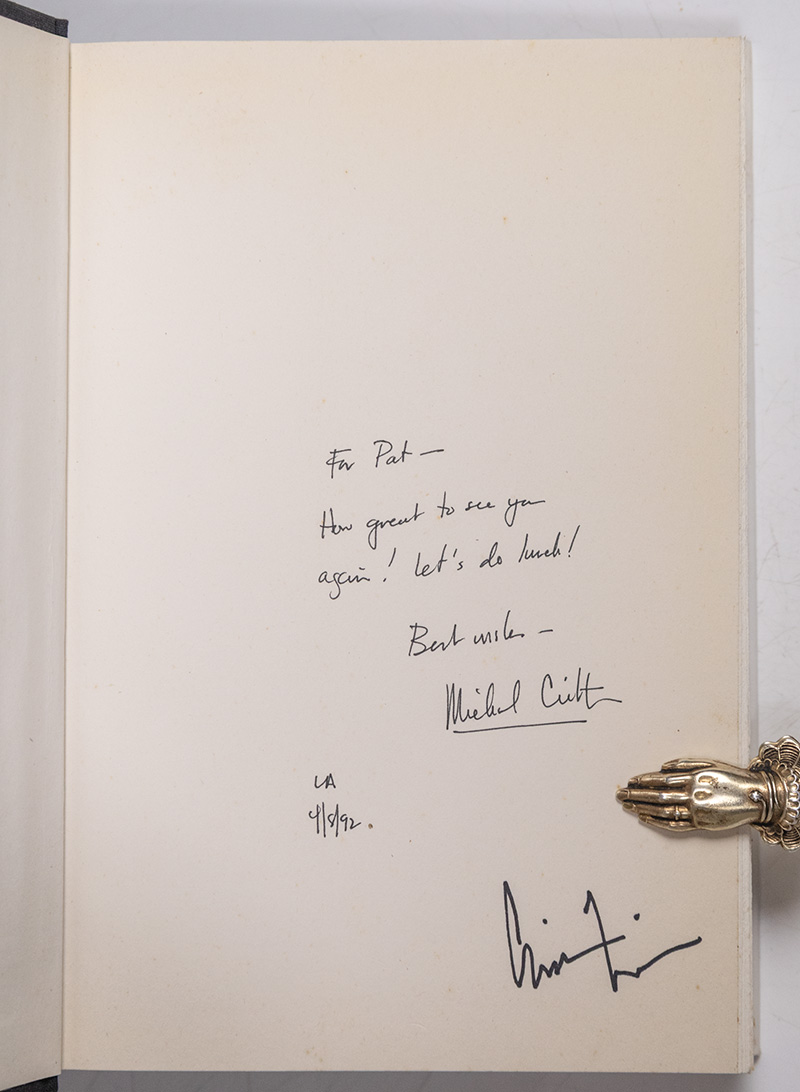 For Pat —
How great to see you
again! Let's do lunch!
Best wishes —
Michael Crichton
LA
4/8/92.